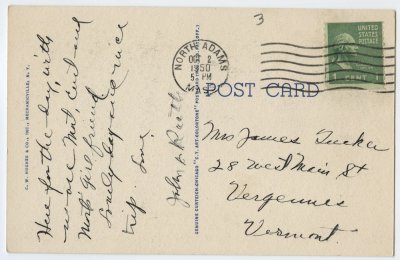 3
C. W. HUGHES & CO., INC., MECHANICVILLE, N. Y.
Here for the day, with
us are Mort, Enid and
Mort's girl friend
Lovely day and nice
trip. Love,
John &
GENUINE CURTEICH-CHICAGO "C.T. ART-COLORTONE" POST CARD
NORTH ADAMS
OCT 2
1950
5 PM
MASS.
UNITED
STATES
POSTAGE
1 CENT
POST CARD
Mrs James Tucker
28 West Main St
Vergennes
Vermont.